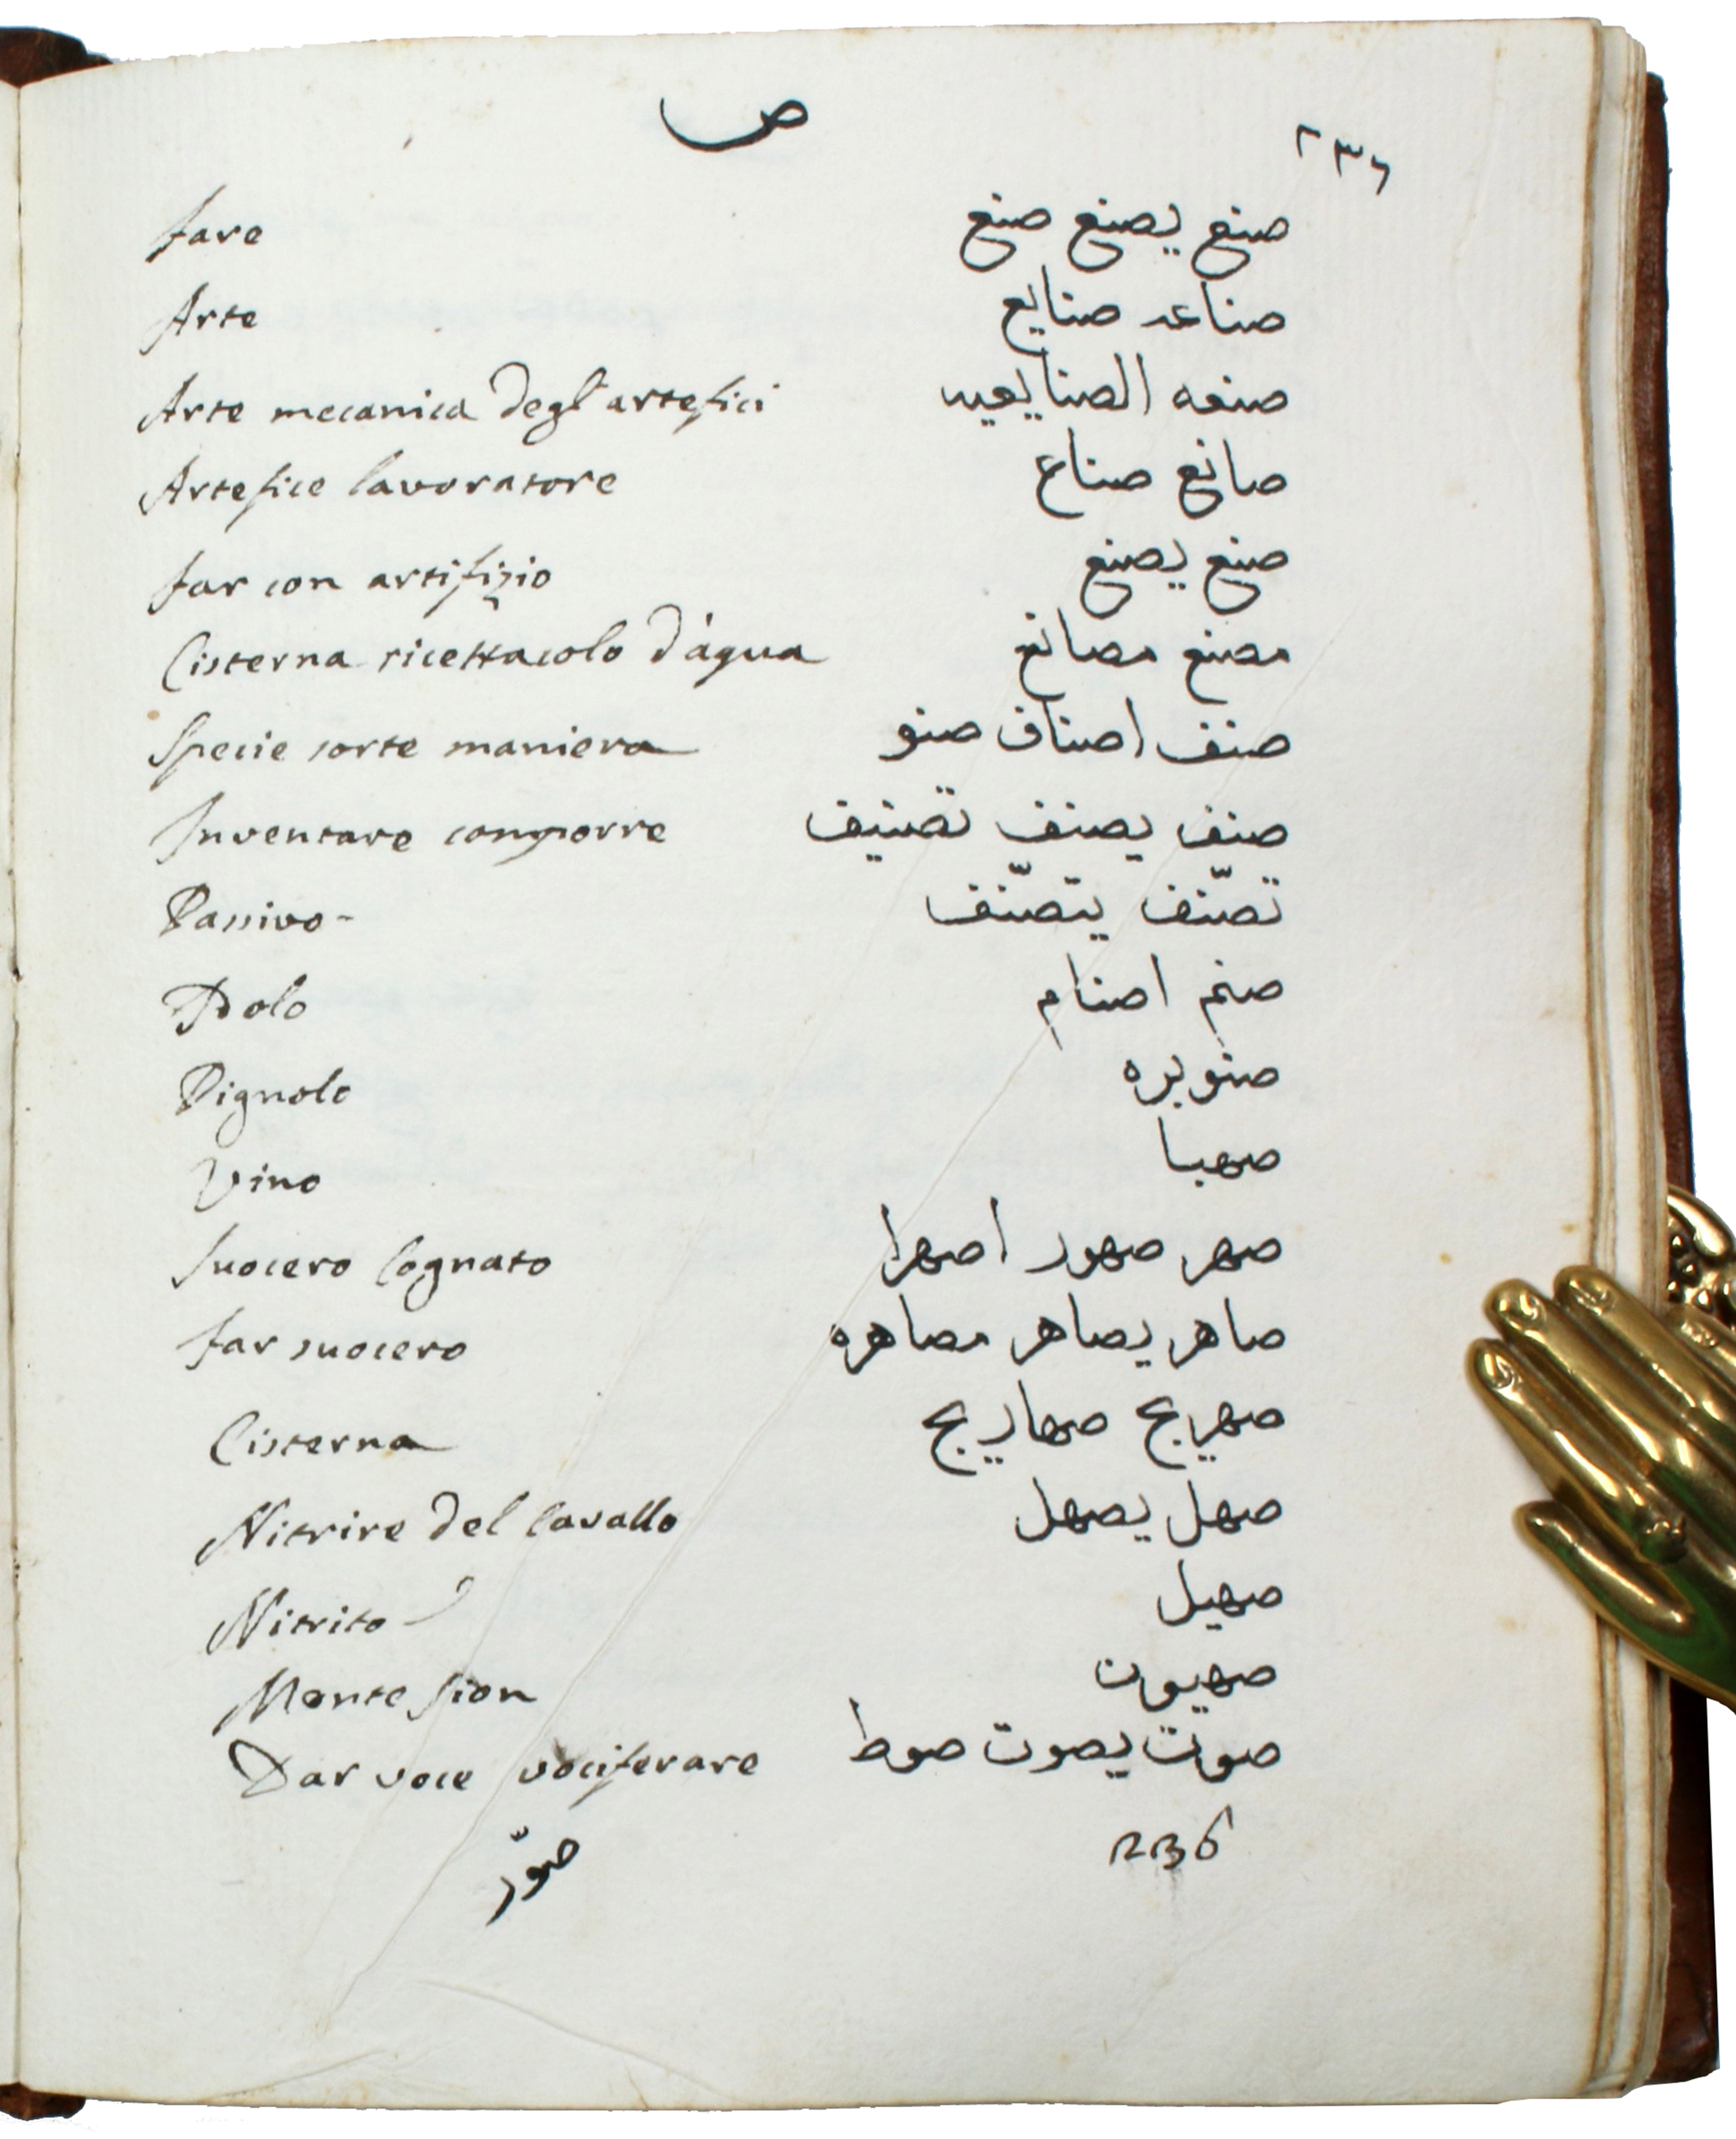 ص ٢٣٦
fare صنع يصنع صنع
Arte صناعه صنايع
Arte mecanica degl'artefici صنعه الصنايعيه
Artefice lavoratore صانع صناع
far con artifizio صنع يصنع
Cisterna ricettacolo d'aqua مصنع مصانع
Specie sorte maniera صنف اصناف صنو
Inventare comporre صنف يصنف تصنيف
Passivo - تصنّف يتصنّف
Idolo صنم اصنام
Pignolo صنوبره
Vino صهبا
Suocero Cognato صهر صهور اصهرا
far suocero صاهر يصاهر مصاهره
Cisterna صهريج صهاريج
Nitrire del Cavallo صهل يصهل
Nitrito صهيل
Monte Sion صهيون
Dar voce vociferare صوت يصوت صوط
صوّر 236